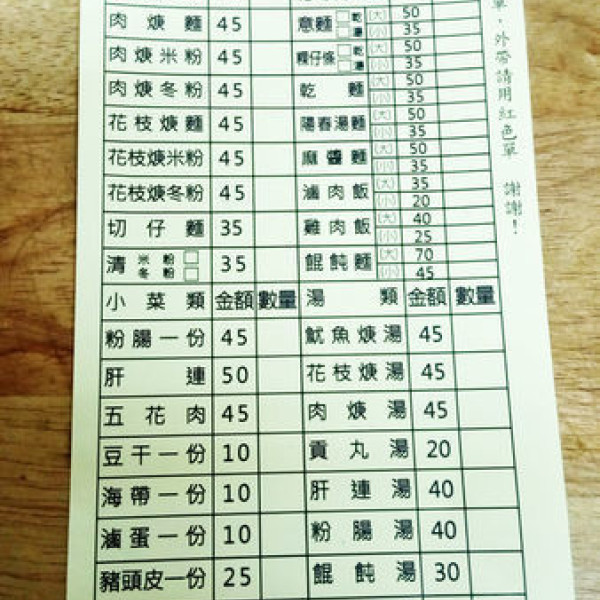 肉焿麵 45 意麵 乾 湯 (大) 50 (小) 35
肉焿米粉 45 粿仔條 乾 湯 (大) 50 (小) 35
肉焿冬粉 45 乾麵 (大) 50 (小) 35
花枝焿麵 45 陽春湯麵 (大) 50 (小) 35
花枝焿米粉 45 麻醬麵 (大) 50 (小) 35
花枝焿冬粉 45 滷肉飯 (大) 35 (小) 20
切仔麵 35 雞肉飯 (大) 40 (小) 25
清 米粉 冬粉 35 餛飩麵 (大) 70 (小) 45
小菜類 金額 數量 湯類 金額 數量
粉腸一份 45 魷魚焿湯 45
肝連 50 花枝焿湯 45
五花肉 45 肉焿湯 45
豆干一份 10 貢丸湯 20
海帶一份 10 肝連湯 40
滷蛋一份 10 粉腸湯 40
豬頭皮一份 25 餛飩湯 30
單，外帶請用紅色單 謝謝！